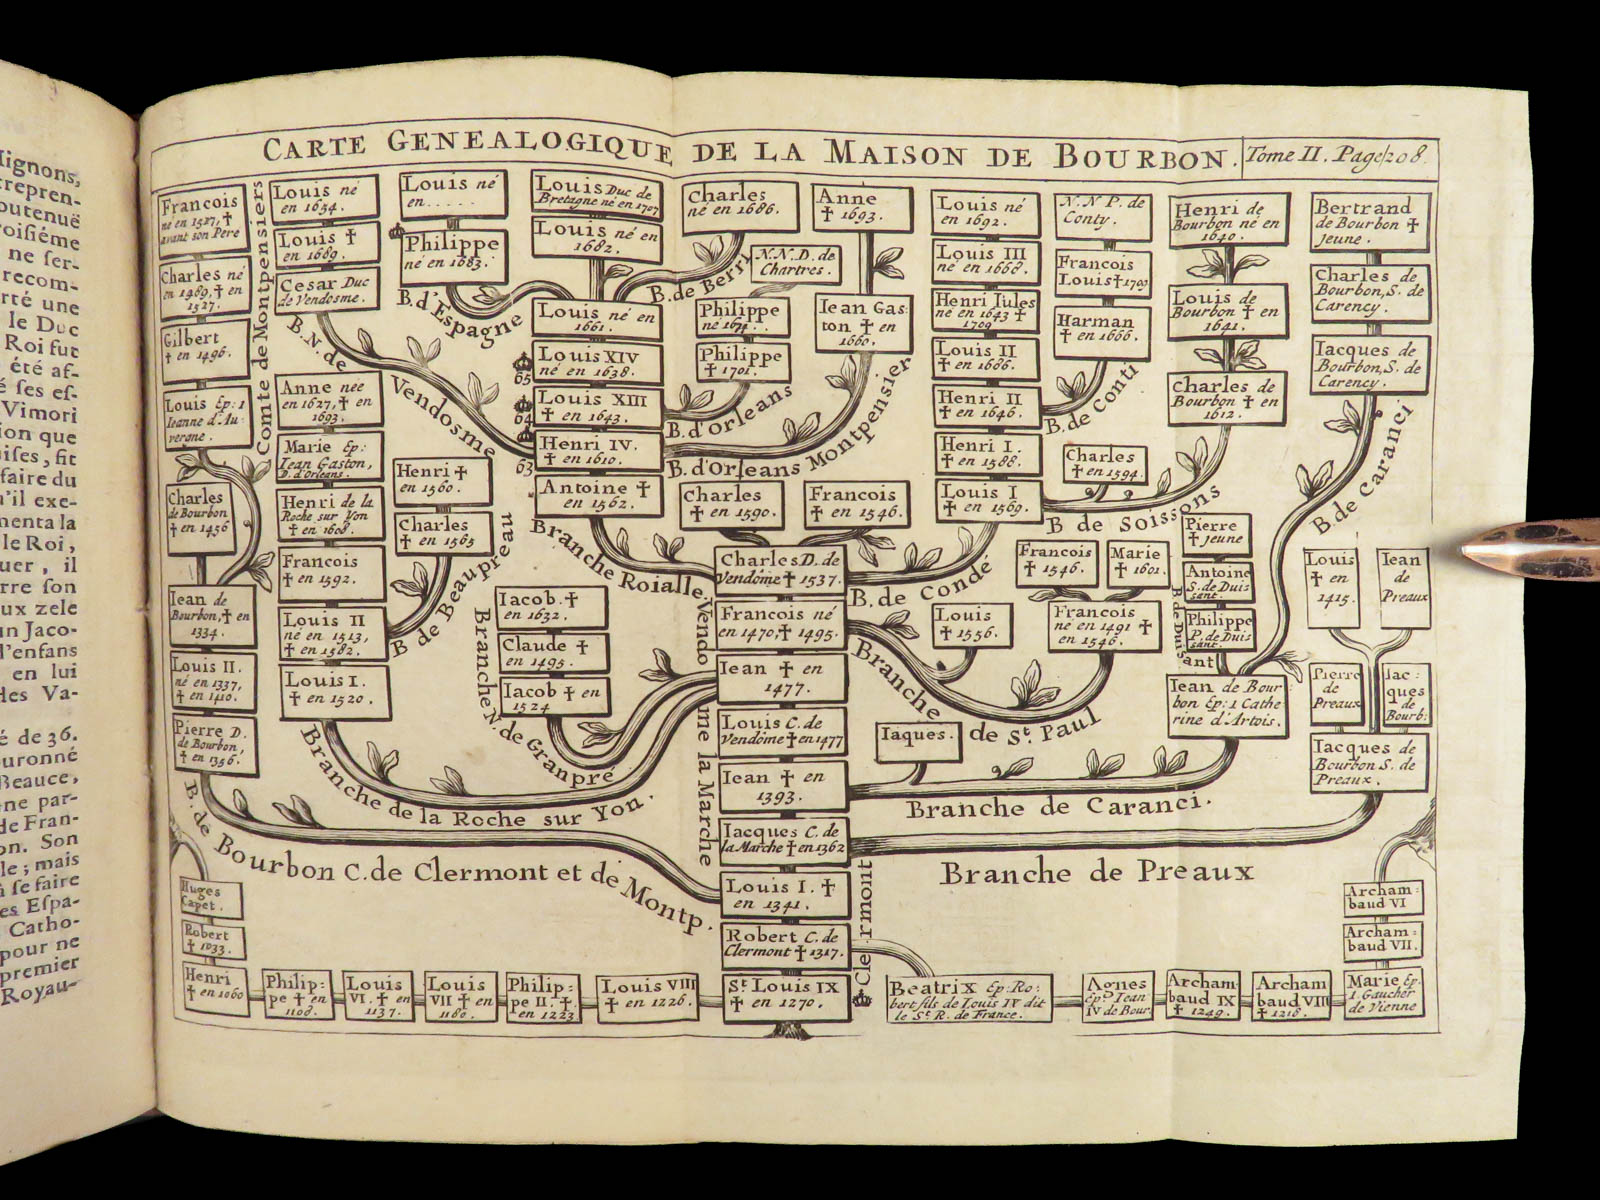 CARTE GENEALOGIQUE DE LA MAISON DE BOURBON.
Tome II. Page 208.
Mignons,
trepren-
outenuë
oisiéme
ne ser-
recom-
rté une
le Duc
Roi fut
été af-
é ses ef-
Vimori
ion que
uises, fit
faire du
u'il exe-
menta la
le Roi,
uer, il
rre son
ux zele
un Jaco-
l'enfans
en lui
des Va-
é de 36.
ouronné
Beauce,
gne par-
de Fran-
on. Son
le; mais
à se faire
es Espa-
Catho-
pour ne
premier
Royau-
Francois
né en 1517, †
avant son Pere
Charles né
en 1489, † en
1527.
Gilbert
† en 1496.
Louis Ep: 1
Ieanne d'Au
vergne.
Comte de Montpensiers
Charles
de Bourbon
† en 1456
Iean de
Bourbon, † en
1334.
Louis II.
né en 1337,
† en 1410.
Pierre D.
de Bourbon,
† en 1356.
B. de Bourbon C. de Clermont et de Montp.
Louis né
en 1654.
Louis †
en 1669.
Cesar Duc
de Vendosme.
B. N. de Vendosme
Anne née
en 1627, † en
1693.
Marie Ep:
Iean Gaston,
D. d'Orleans.
Henri de la
Roche sur Yon
† en 1608.
Francois
† en 1592.
Louis II
né en 1513,
† en 1582.
Louis I.
† en 1520.
Branche de la Roche sur Yon.
Henri †
en 1560.
Charles
† en 1565
B. de Beaupreau
Louis né
en......
Philippe
né en 1683.
B. d'Espagne
Louis Duc de
Bretagne né en 1707
Louis né en
1682.
Louis né en
1661.
Louis XIV
né en 1638.
65
Louis XIII
† en 1643.
64
Henri IV.
† en 1610.
63
Antoine †
en 1562.
Branche Roialle
Charles
né en 1686.
B. de Berri
N. N. D. de
Chartres.
Philippe
né 1674..
Philippe
† 1701.
B. d'Orleans
Anne
† 1693.
Iean Gas:
ton † en
1660.
B. d'Orleans Montpensier
Charles
† en 1590.
Francois
† en 1546.
Louis né
en 1692.
Louis III
né en 1668.
Henri Iules
né en 1643 †
1709
Louis II
† en 1686.
Henri II
† en 1646.
Henri I.
† en 1588.
Louis I
† en 1569.
B. de Condé
N. N P. de
Conty.
Francois
Louis † 1709
Harman
† en 1666.
B. de Conti
Charles
† en 1594.
Henri de
Bourbon né en
1640.
Louis de
Bourbon †
1641.
Charles de
Bourbon †
1612.
B de Soissons
Bertrand
de Bourbon †
jeune.
Charles de
Bourbon, S. de
Carency.
Iacques de
Bourbon, S. de
Carency.
B. de Caranci
Iacob. †
en 1632.
Claude †
en 1495.
Iacob † en
1524
Branche N. de Granpré
Charles D. de
Vendôme † 1537.
Francois né
en 1470, † 1495.
Iean † en
1477.
Louis C. de
Vendôme † en 1477
Iean † en
1393.
Iacques C. de
la Marche † en 1362
Vendome la Marche
Louis I. †
en 1341.
Robert C. de
Clermont † 1317.
Clermont
St. Louis IX
† en 1270.
Louis
† 1556.
Francois
† 1546.
Marie
† 1601.
Francois
né en 1491 †
en 1546.
Branche de St. Paul
Pierre
† jeune
Antoine
S. de Duis
sant.
Philippe
P. de Duis
sant.
B. de Duisant
Iean de Bour:
bon Ep: 1 Cathe
rine d'Artois.
Iaques.
Branche de Caranci.
Louis
† en
1415.
Iean
de
Preaux
Pierre
de
Preaux
Iac:
ques
de
Bourb:
Iacques de
Bourbon S. de
Preaux.
Branche de Preaux
Huges
Capet.
Robert
† 1033.
Henri
† en 1060
Philip:
pe † en
1108.
Louis
VI. † en
1137.
Louis
VII † en
1180.
Philip:
pe II. †
en 1223
Louis VIII
† en 1226.
Beatrix Ep: Ro:
bert fils de Louis IX dit
le St. R. de France.
Agnes
Ep: Iean
IV de Bour.
Archam
baud IX
† 1249.
Archam
baud VIII
† 1218.
Marie Ep.
1 Gaucher
de Vienne
Archam:
baud VII.
Archam:
baud VI